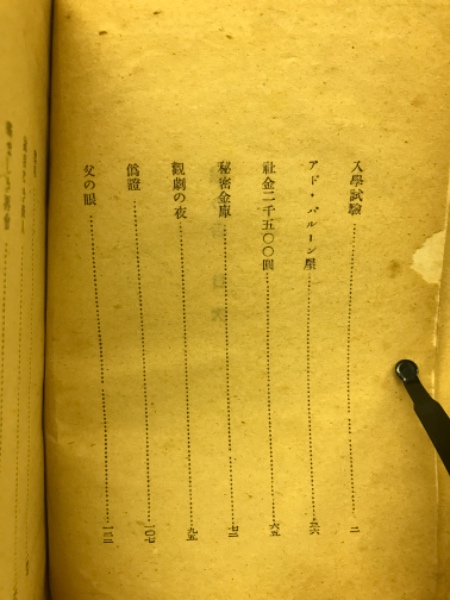 入學試驗……二
アド・バルーン屋……三六
社金二千五〇〇圓……六五
秘密金庫……七三
觀劇の夜……九五
僞證……一〇七
父の眼……一三二